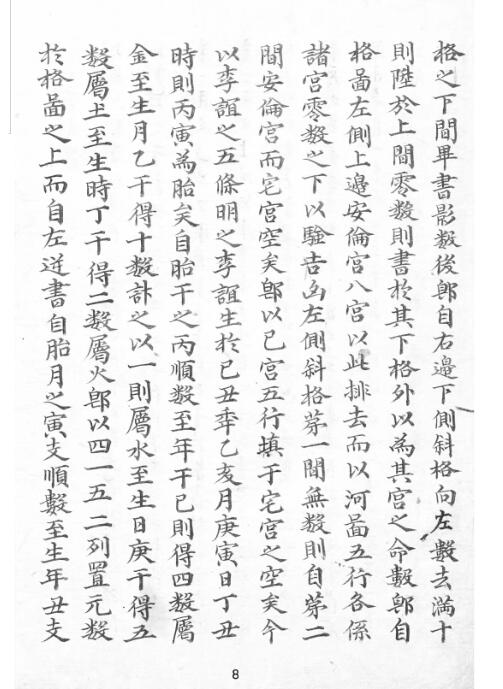 格之下間畢書影数後即自右邉下側斜格向左數去滿十
則陞於上間零数則書於其下格外以為其宮之命數即自
格啚左側上邉安倫宮八宮以此排去而以河啚五行各係
諸宮零数之下以驗吉凶左側斜格苐一間無数則自苐二
間安倫宮而宅宮空矣即以已宮五行填于宅宮之空矣今
以李誼之五條明之李誼生於已丑年乙亥月庚寅日丁丑
時則丙寅為胎矣自胎干之丙順数至年干已則得四数屬
金至生月乙干得十数計之以一則屬水至生日庚干得五
数屬土至生時丁干得二数屬火即以四一五二列置元数
於格啚之上而自左逆書自胎月之寅支順數至生年丑支
8